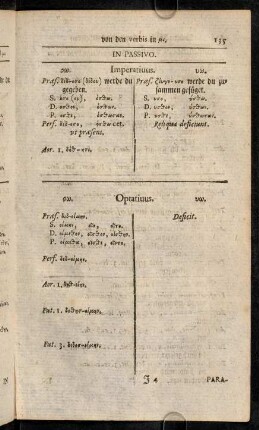 von den verbis in μι. 135
IN PASSIVO.
οω. Imperativus. υω.
Præs. διδ-οσο (διδου) werde du gegeben.
S. οσο (ου), όσθω.
D. οσθον, όσθων.
P. οσθε, όσθωσαν.
Perf. δεδ-οσο, όσθω cet.
ut præsens.
Aor. 1. δόθ-ητι.
Præs. ζεύγν-υσο werde du zusammen gefüget.
S. υσο, ύσθω.
D. υσθον, ύσθων.
P. υσθε, ύσθωσαν.
Reliqua deficiunt.
οω. Optativus. υω.
Præs. διδ-οίμην.
S. οίμην, οῖο, οῖτο.
D. οίμεθον, οῖσθον, οίσθην.
P. οίμεθα, οῖσθε, οῖντο.
Perf. δεδ-οίμην.
Aor. 1. δοθ-είην.
Fut. 1. δοθησ-οίμην.
Fut. 3. δεδοσ-οίμην.
Deficit.
J 4 PARA-